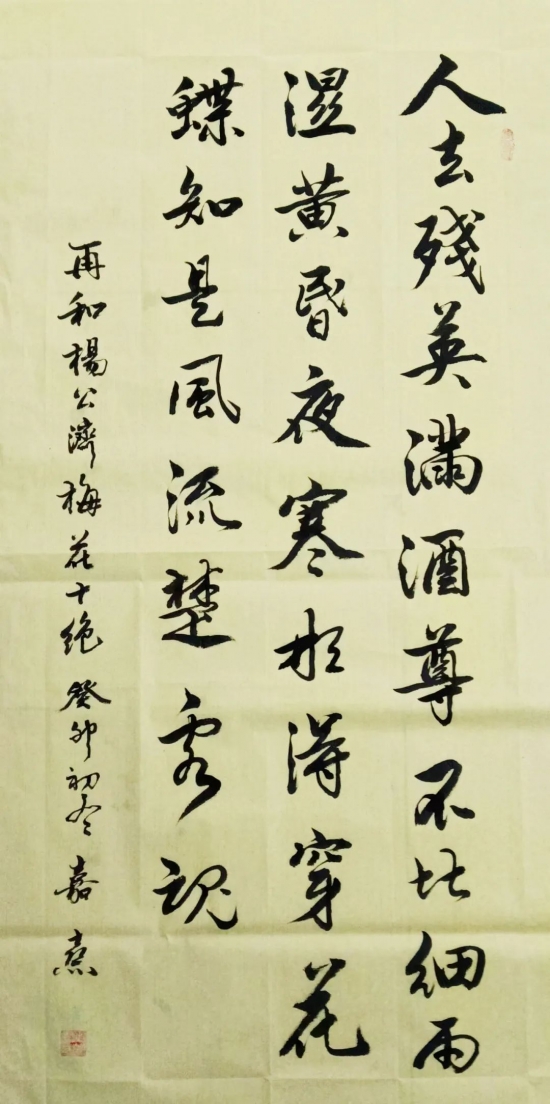 人去殘英滿酒尊不堪細雨
湿黄昬夜寒那得穿花
蝶知是風流楚客魂
再和楊公濟梅花十絕 癸卯初冬 嘉